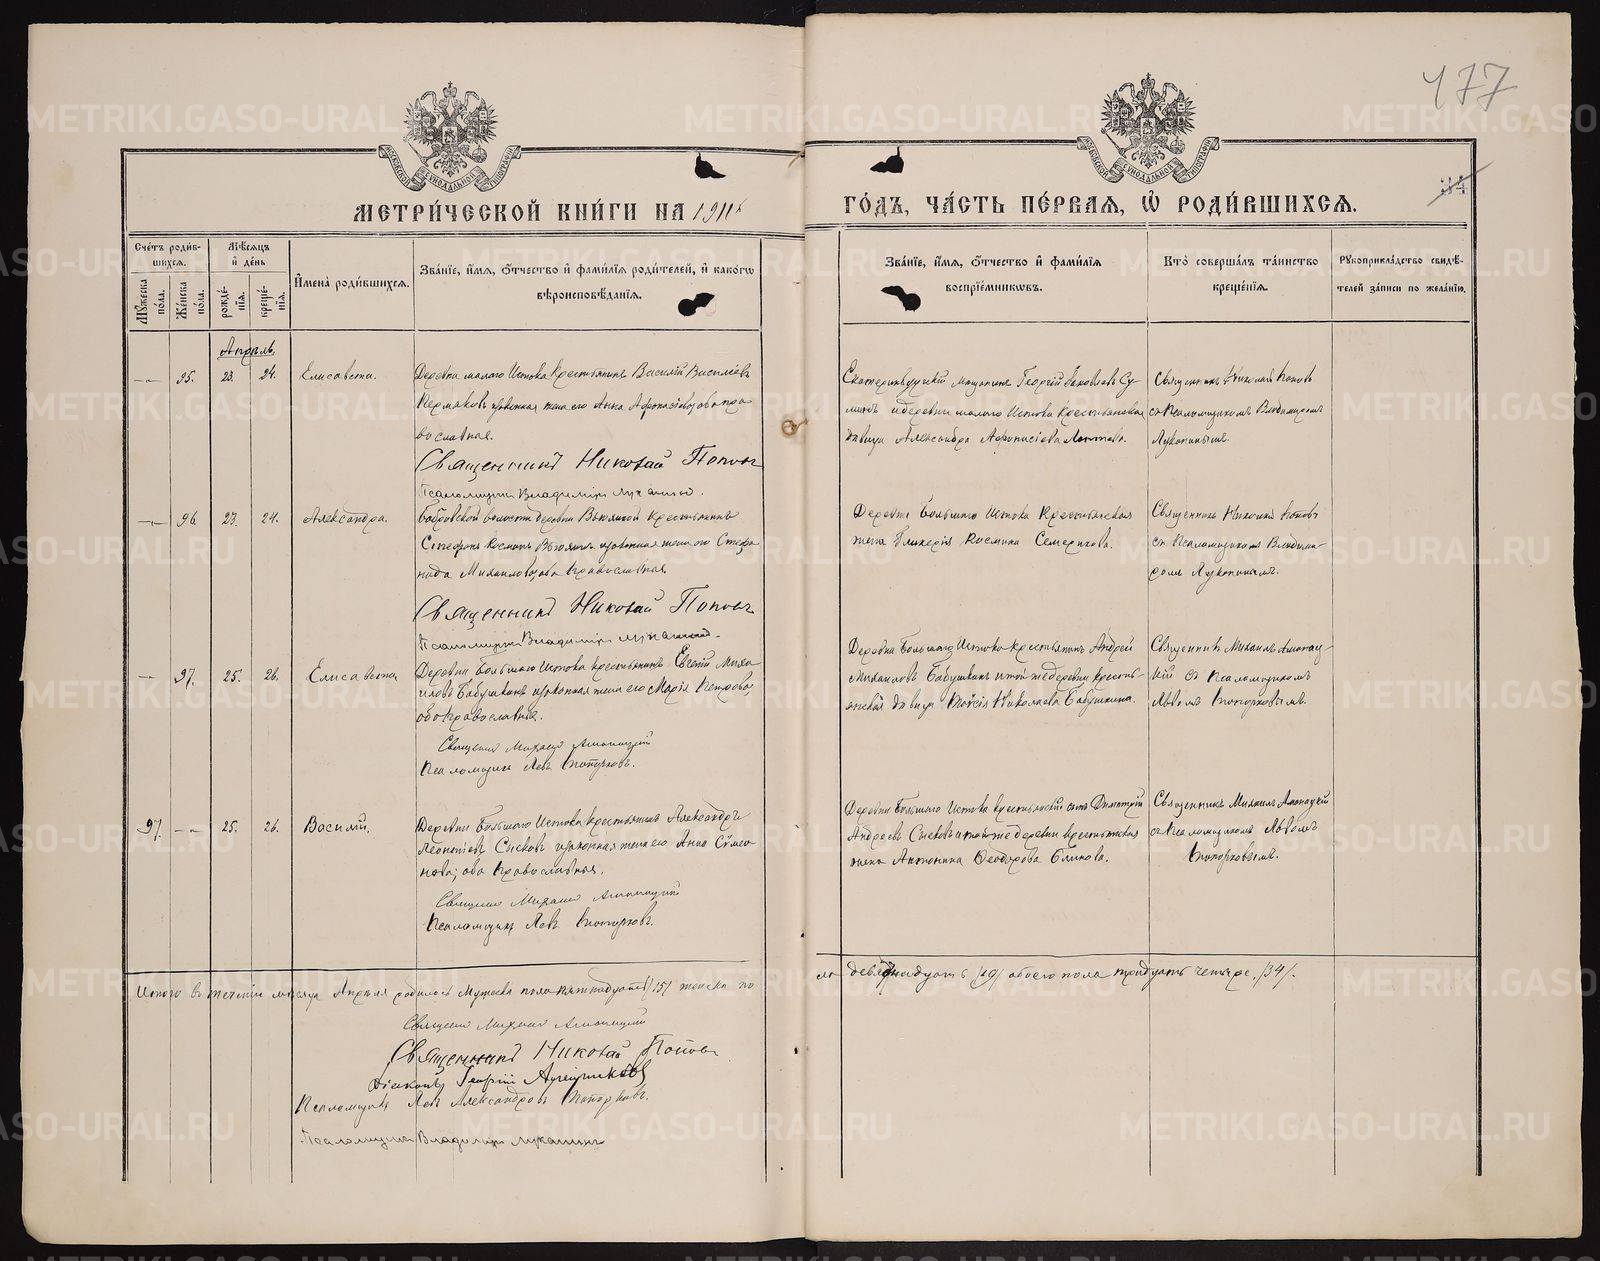 477
34
МОСКОВСКОЙ СѴНОДАЛЬНОЙ ТИПОГРАФІИ
МОСКОВСКОЙ СѴНОДАЛЬНОЙ ТИПОГРАФІИ
МЕТРИ́ЧЕСКОЙ КНИ́ГИ НА 1911
ГО́ДЪ, ЧА́СТЬ ПЕ́РВАЯ, Ѡ҆ РОДИ́ВШИХСЯ.
Сче́тъ роди́вшихся.
Мꙋ́жеска по́ла.
Же́нска по́ла.
Мѣ́сяцъ и҆ де́нь
рожде́нїя.
креще́нїя.
И҆мена̀ роди́вшихся.
Зва́нїе, и҆́мя, ѻ҆́тчество и҆ фами́лїя роди́телей, и҆ како́гѡ
вѣроисповѣ́данїя.
Зва́нїе, и҆́мя, ѻ҆́тчество и҆ фами́лїя
воспрїе́мникѡвъ.
Кто̀ соверша́лъ та́инство
креще́нїя.
Рꙋкоприкла́дство свидѣ́-
телей за́писи по жела́нїю.
Апрѣль
95. 23. 24. Елисавета.
Деревни малого Истока Крестьянинъ Василій Василіевъ
Пермяковъ и законная жена его Анна Афонасіева; оба пра
вославная.
Священникъ Николай Поповъ
Псаломщикъ Владиміръ Луканинъ.
Екатеринбургскій Мѣщанинъ Георгій Яковлевъ Су-
и деревни малого Истока Крестьянская
дѣвица Александра Афонасіева
Священникъ Николай Поповъ
съ Псаломщикомъ Владиміромъ
Луканинымъ.
96. 23. 24. Александра.
Бобровской волости деревни Крестьянинъ
Стефанъ Косминъ и законная жена его Стефа
нида Михаилова; оба православная.
Священникъ Николай Поповъ
Псаломщикъ Владиміръ Лукакинъ.
Деревни Большого Истока Крестьянская
жена Гликерія Космина Семерикова.
Священникъ Николай Поповъ
съ Псаломщикомъ Владими-
ромъ Лукакинымъ.
97. 25. 26. Елисавета.
Деревни Большого Истока крестьянинъ Евгеній Миха
иловъ Бабушкинъ и законная жена его Марія Петрова,
оба православная.
Священникъ Михаилъ
Псаломщикъ Левъ Топорковъ.
Деревни Большого Истока крестьянинъ Андрей
Михаиловъ Бабушкинъ и той же деревни кресть-
янская дѣвица Николаева Бабушкина.
Священникъ Михаилъ
съ Псаломщикомъ
Львомъ Топорковымъ.
97. 25. 26. Василій.
Деревни Большого Истока крестьянинъ Александръ
Леонтіевъ и законная жена его Анна Сѵмео
нова; оба Православная.
Священникъ Михаилъ
Псаломщикъ Левъ Топорковъ.
Деревни Большого Истока крестьянскій сынъ Димитрій
Андреевъ и той же деревни крестьянская
жена Антонина Ѳеодорова Блинова.
Священникъ Михаилъ
съ Псаломщикомъ Львомъ
Топорковымъ.
Итого въ теченіи мѣсяца Апрѣля родилось Мужеска пола пятнадцать /15/ женска по
ла девятнадцать /19/ обоего пола тридцать четыре. /34/.
Священникъ Михаилъ
Священникъ Николай Поповъ
Діаконъ Георгій
Псаломщикъ Левъ Александровъ Топорковъ.
Псаломщикъ Владиміръ Лукакинъ
METRIKI.GASO-URAL.RU